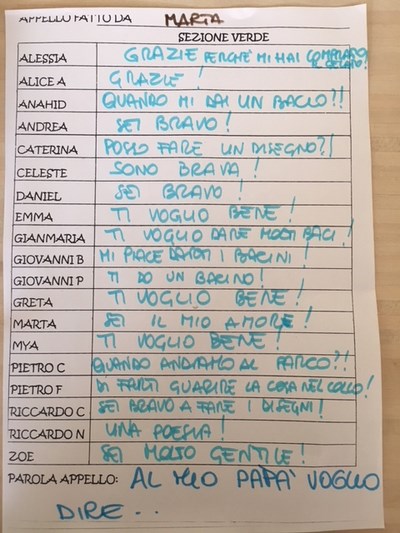 APPELLO FATTO DA MARTA
SEZIONE VERDE
ALESSIA GRAZIE PERCHÈ MI HAI COMPRATO IL GELATO!
ALICE A GRAZIE!
ANAHID QUANDO MI DAI UN BACIO?!
ANDREA SEI BRAVO!
CATERINA POSSO FARE UN DISEGNO?!
CELESTE SONO BRAVA!
DANIEL SEI BRAVO!
EMMA TI VOGLIO BENE!
GIANMARIA TI VOGLIO DARE MOLTI BACI!
GIOVANNI B MI PIACE DARTI I BACINI!
GIOVANNI P TI DO UN BACINO!
GRETA TI VOGLIO BENE!
MARTA SEI IL MIO AMORE!
MYA TI VOGLIO BENE!
PIETRO C QUANDO ANDIAMO AL PARCO?!
PIETRO F DI FARTI GUARIRE LA COSA NEL COLLO!
RICCARDO C SEI BRAVO A FARE I DISEGNI!
RICCARDO N UNA POESIA!
ZOE SEI MOLTO GENTILE!
PAROLA APPELLO: AL MIO PAPA' VOGLIO
DIRE...